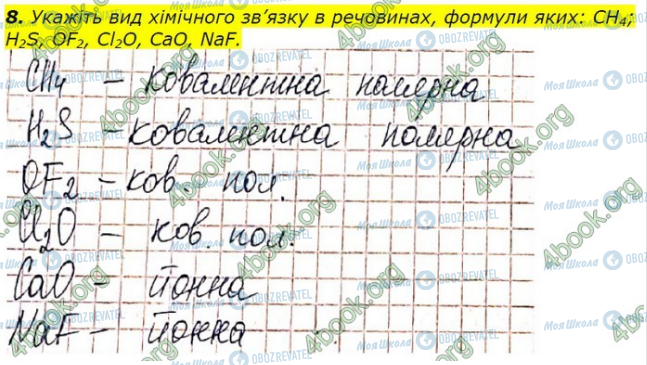 8. Укажіть вид хімічного зв’язку в речовинах, формули яких: CH₄;
H₂S, OF₂, Cl₂O, CaO, NaF.
CH₄ – ковалентна полярна
H₂S – ковалентна полярна
OF₂ – ков. пол.
Cl₂O – ков. пол.
CaO – йонна
NaF – йонна